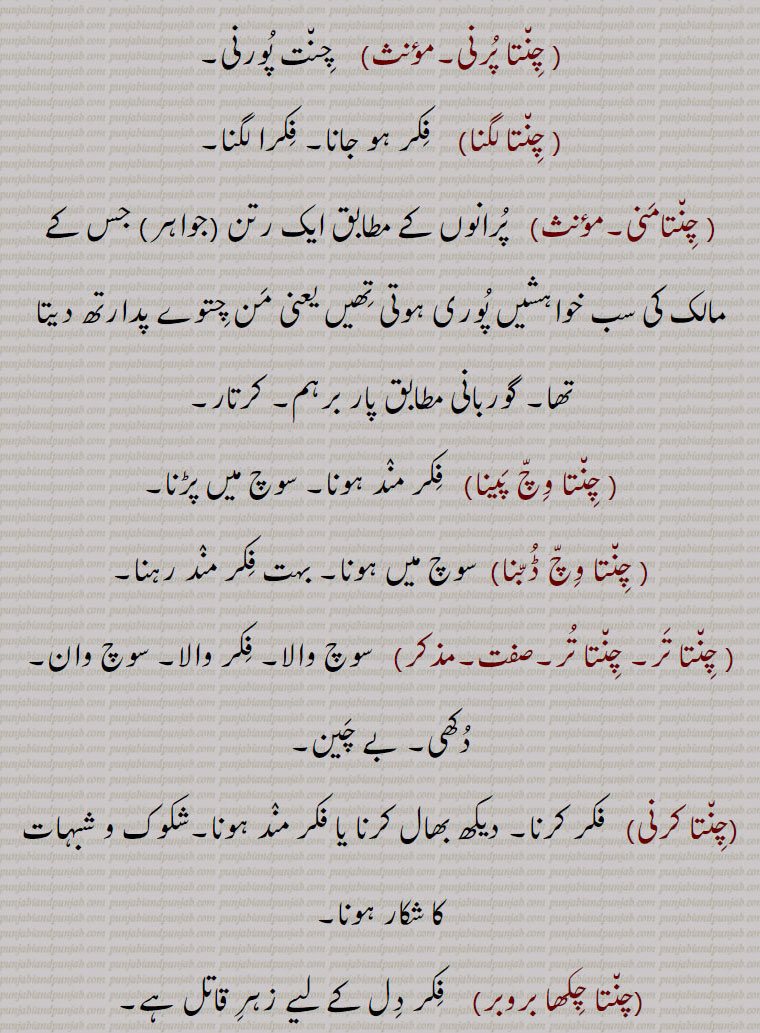 ( چِنّتا پُرنی۔مؤنث) چِنّت پُورنی۔
( چِنّتا لگنا) فِکر ہو جانا۔ فِکرا لگنا۔
( چِنّتامَنی۔مؤنث) پُرانوں کے مطابق ایک رتن (جواہر) جس کے
مالک کی سب خواہشیں پُوری ہوتی تِھیں یعنی مَن چِتوے پدارتھ دیتا
تھا۔ گوربانی مطابق پار برہم۔ کرتار۔
( چِنّتا وِچّ پَینا) فِکر منْد ہونا۔ سوچ میں پڑنا۔
( چِنّتا وِچّ ڈُبّنا) سوچ میں ہونا۔ بہت فِکر منْد رہنا۔
( چِنّتا تَر۔ چِنّتا تُر۔صفت۔مذکر) سوچ والا۔ فِکر والا۔ سوچ وان۔
دُکھی۔ بے چَین۔
(چِنّتا کرنی) فکر کرنا۔ دیکھ بھال کرنا یا فکر منْد ہونا۔شکوک و شبہات
کا شکار ہونا۔
(چِنّتا چِکھا بروبر) فِکر دِل کے لیے زہرِ قاتل ہے۔